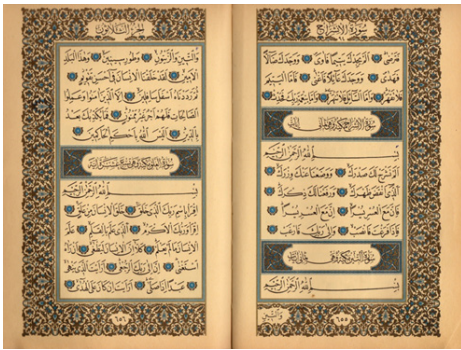 سورة الانشراح
فَتَرْضٰى اَلَمْ يَجِدْكَ يَتِيمًا فَاٰوٰى وَوَجَدَكَ ضَالًّا
فَهَدٰى وَوَجَدَكَ عَائِلًا فَاَغْنٰى فَاَمَّا الْيَتِيمَ
فَلَا تَقْهَرْ وَاَمَّا السَّائِلَ فَلَا تَنْهَرْ وَاَمَّا بِنِعْمَةِ رَبِّكَ فَحَدِّثْ
سورة الانشراح مكية وهي ثماني آيات
بِسْمِ اللّٰهِ الرَّحْمٰنِ الرَّحِيمِ
اَلَمْ نَشْرَحْ لَكَ صَدْرَكَ وَوَضَعْنَا عَنْكَ وِزْرَكَ
اَلَّذِي اَنْقَضَ ظَهْرَكَ وَرَفَعْنَا لَكَ ذِكْرَكَ
فَاِنَّ مَعَ الْعُسْرِ يُسْرًا اِنَّ مَعَ الْعُسْرِ يُسْرًا
فَاِذَا فَرَغْتَ فَانْصَبْ وَاِلٰى رَبِّكَ فَارْغَبْ
سورة التين مكية وهي ثماني آيات
بِسْمِ اللّٰهِ الرَّحْمٰنِ الرَّحِيمِ
٦٥٥
الجزء الثلاثون
وَالتِّينِ وَالزَّيْتُونِ وَطُورِ سِينِينَ وَهٰذَا الْبَلَدِ
الْاَمِينِ لَقَدْ خَلَقْنَا الْاِنْسَانَ فِي اَحْسَنِ تَقْوِيمٍ
ثُمَّ رَدَدْنَاهُ اَسْفَلَ سَافِلِينَ اِلَّا الَّذِينَ اٰمَنُوا وَعَمِلُوا
الصَّالِحَاتِ فَلَهُمْ اَجْرٌ غَيْرُ مَمْنُونٍ فَمَا يُكَذِّبُكَ بَعْدُ
بِالدِّينِ اَلَيْسَ اللّٰهُ بِاَحْكَمِ الْحَاكِمِينَ
سورة العلق مكية وهي تسع عشرة آية
بِسْمِ اللّٰهِ الرَّحْمٰنِ الرَّحِيمِ
اِقْرَأْ بِاسْمِ رَبِّكَ الَّذِي خَلَقَ خَلَقَ الْاِنْسَانَ مِنْ عَلَقٍ
اِقْرَأْ وَرَبُّكَ الْاَكْرَمُ اَلَّذِي عَلَّمَ بِالْقَلَمِ عَلَّمَ
الْاِنْسَانَ مَا لَمْ يَعْلَمْ كَلَّا اِنَّ الْاِنْسَانَ لَيَطْغٰى اَنْ رَاٰهُ
اسْتَغْنٰى اِنَّ اِلٰى رَبِّكَ الرُّجْعٰى اَرَاَيْتَ الَّذِي يَنْهٰى
عَبْدًا اِذَا صَلّٰى اَرَاَيْتَ اِنْ كَانَ عَلَى الْهُدٰى
٦٥٦